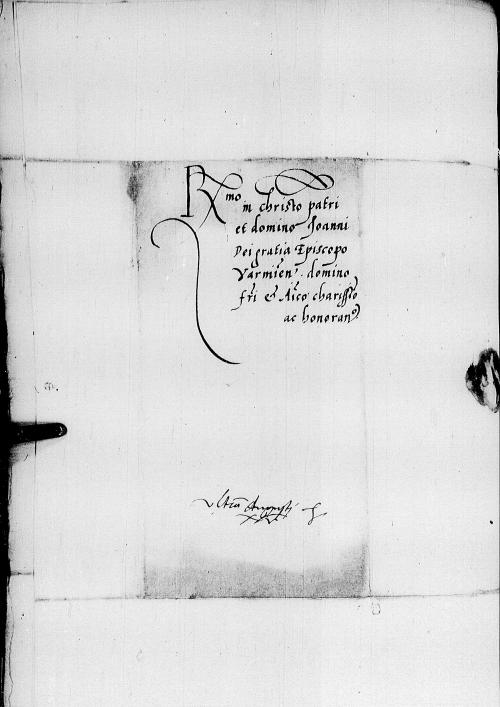 Rmo
in christo patri
et domino Joanni
Dei gratia Episcopo
Varmien. domino
fri et Aico charissO
ac honoranO
Augusti